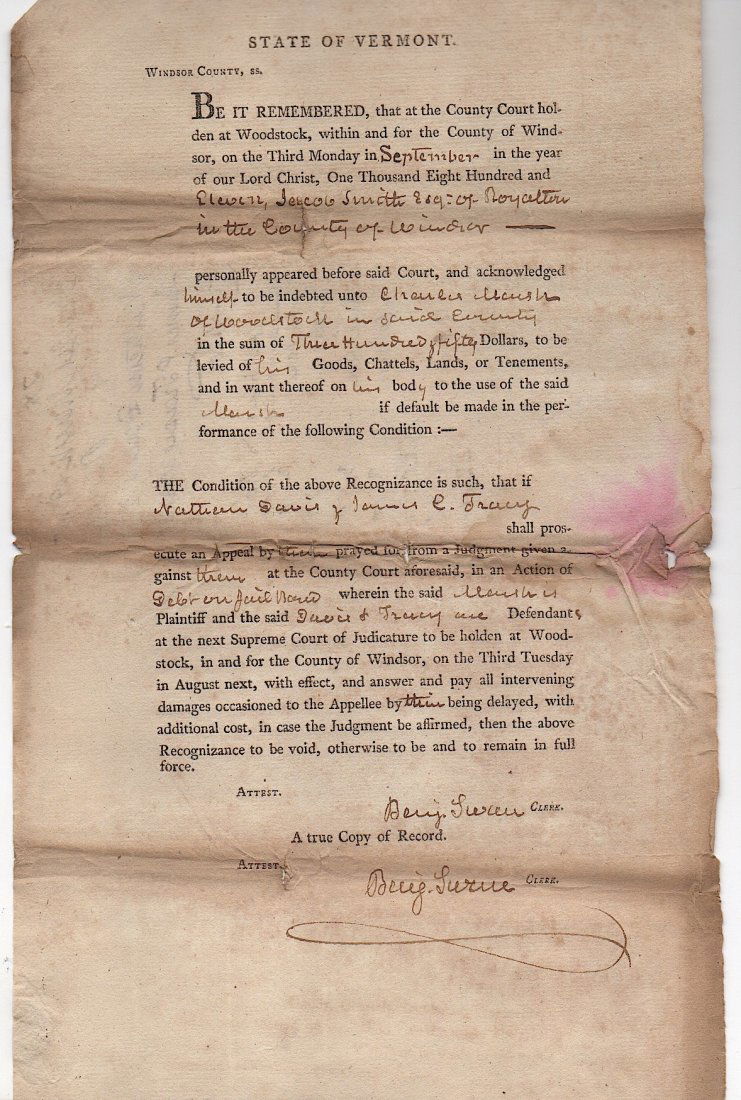 STATE OF VERMONT.
WINDSOR COUNTY, ss.
BE IT REMEMBERED, that at the County Court hol-
den at Woodstock, within and for the County of Wind-
sor, on the Third Monday in September in the year
of our Lord Christ, One Thousand Eight Hundred and
Eleven, Jacob Smith Esqr. of Royalton
in the County of Windsor —
personally appeared before said Court, and acknowledged
himself to be indebted unto Charles Marsh
of Woodstock in said County
in the sum of Three Hundred & fifty Dollars, to be
levied of his Goods, Chattels, Lands, or Tenements,
and in want thereof on his body to the use of the said
Marsh if default be made in the per-
formance of the following Condition :—
THE Condition of the above Recognizance is such, that if
Nathan Davis & James C. Tracy
shall pros-
ecute an Appeal by them prayed for, from a Judgment given a-
gainst them at the County Court aforesaid, in an Action of
Debt on Jail Bond wherein the said Marsh is
Plaintiff and the said Davis & Tracy are Defendants
at the next Supreme Court of Judicature to be holden at Wood-
stock, in and for the County of Windsor, on the Third Tuesday
in August next, with effect, and answer and pay all intervening
damages occasioned to the Appellee by their being delayed, with
additional cost, in case the Judgment be affirmed, then the above
Recognizance to be void, otherwise to be and to remain in full
force.
ATTEST.
Benj. Swan CLERK.
A true Copy of Record.
ATTEST.
Benj. Swan CLERK.